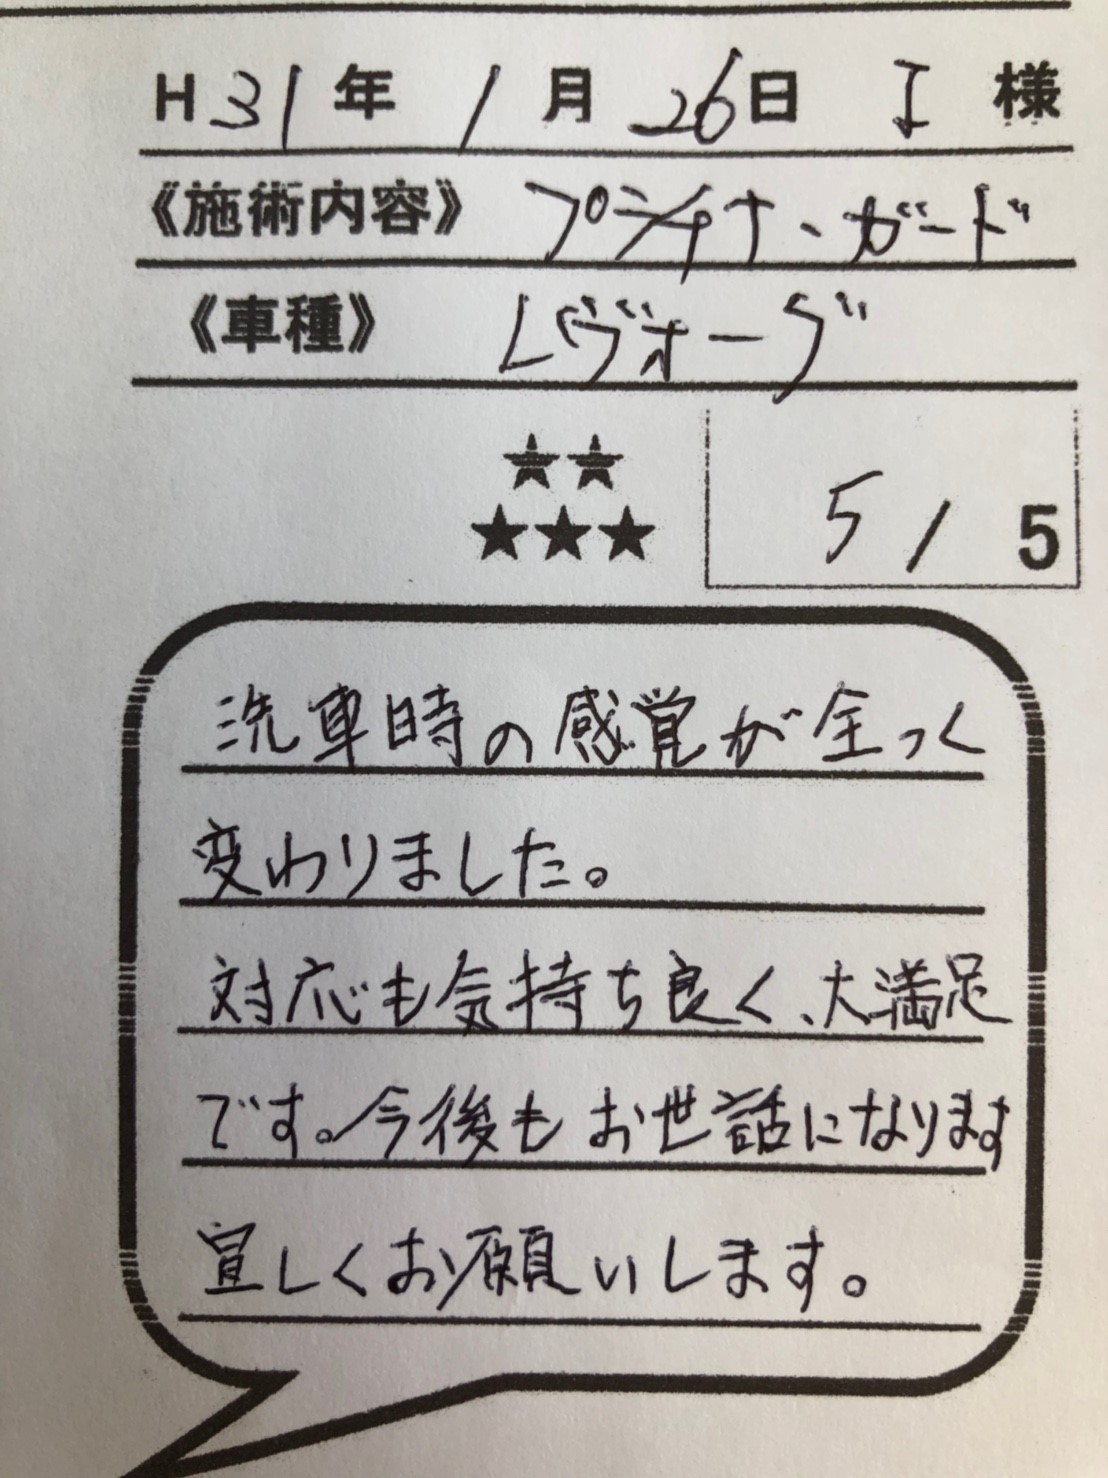 H31年 1月 26日 I 様
《施術内容》 プラチナ・ガード
《車種》 レヴォーグ
★★
★★★ 5 / 5
洗車時の感覚が全っく
変わりました。
対応も気持ち良く、大満足
です。今後もお世話になります
宜しくお願いします。